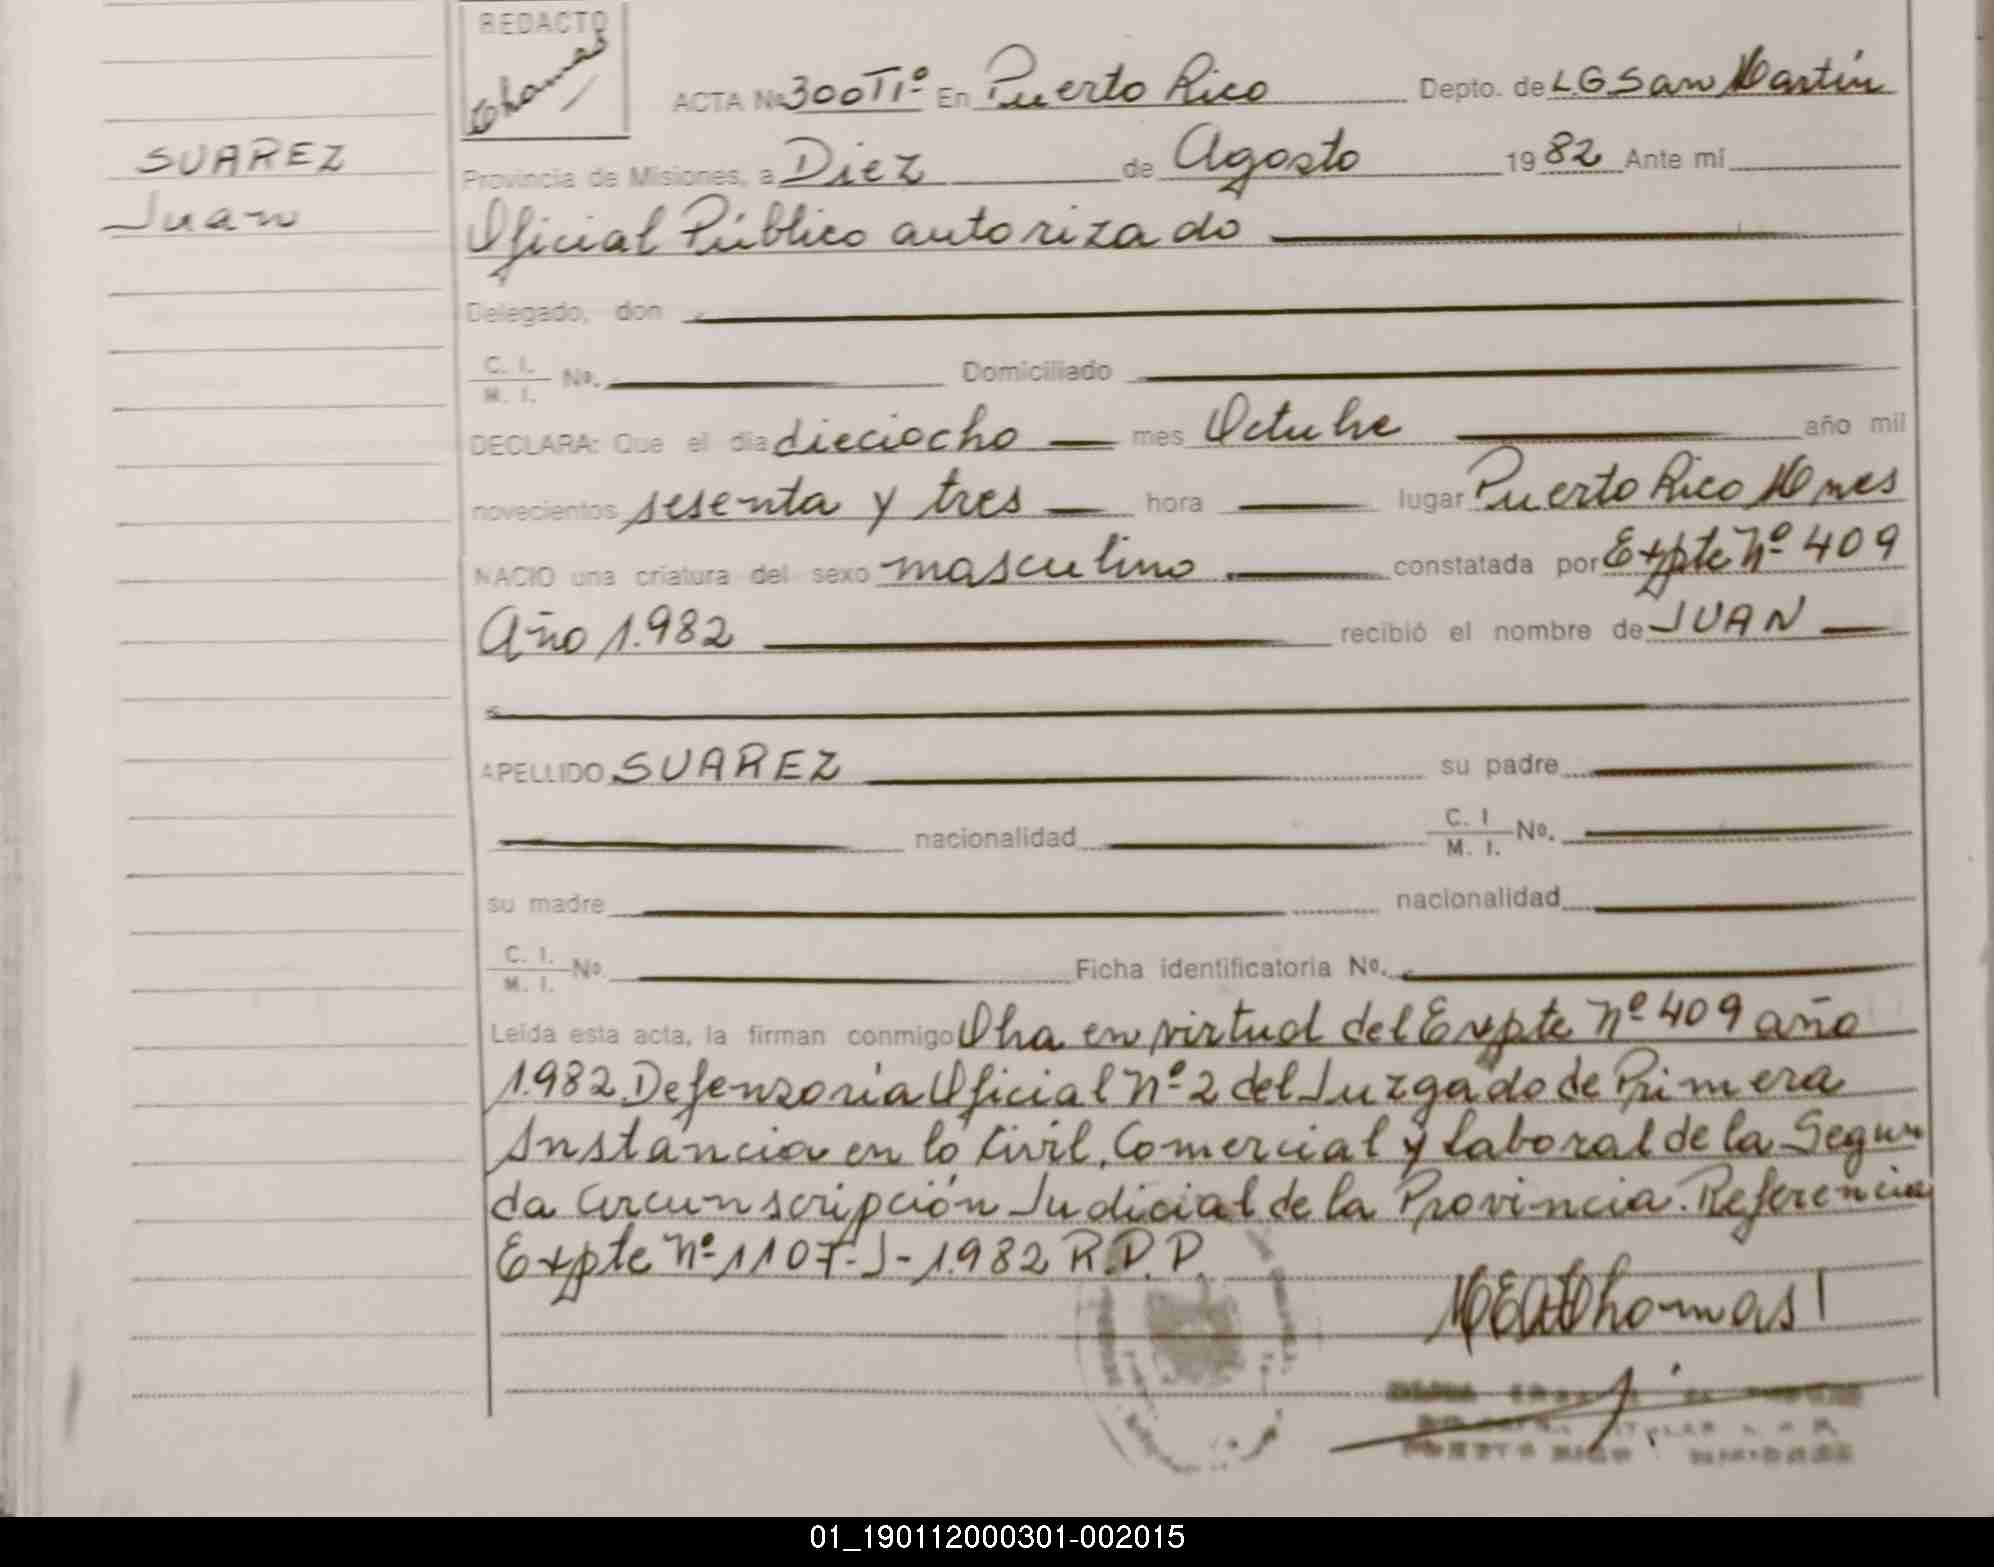 REDACTO
Thomas
SUAREZ
Juan
ACTA Nº 300 Tº 1º En Puerto Rico Depto. de L.G. San Martín
Provincia de Misiones, a Diez de Agosto 1982 Ante mí
Oficial Público autorizado
Delegado, don
C. I. / M. I. Nº. Domiciliado
DECLARA: Que el día dieciocho mes Octubre año mil
novecientos sesenta y tres hora lugar Puerto Rico Mnes
NACIO una criatura del sexo masculino constatada por Expte Nº 409
Año 1.982 recibió el nombre de JUAN
APELLIDO SUAREZ su padre
nacionalidad C. I / M. I. Nº.
su madre nacionalidad
C. I. / M. I. Nº. Ficha identificatoria Nº.
Leída esta acta, la firman conmigo Oha en virtud del Expte Nº 409 año
1.982 Defensoría Oficial Nº 2 del Juzgado de Primera
Instancia en lo Civil, Comercial y laboral de la Segun
da Circunscripción Judicial de la Provincia. Referencia
Expte Nº 1107-J-1982 R.D.P.
Thomas
PUERTO RICO MISIONES
01_190112000301-002015